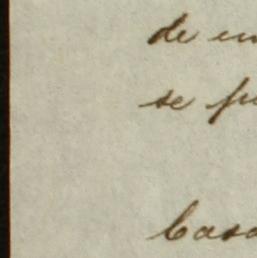 de en
se fu
Casa